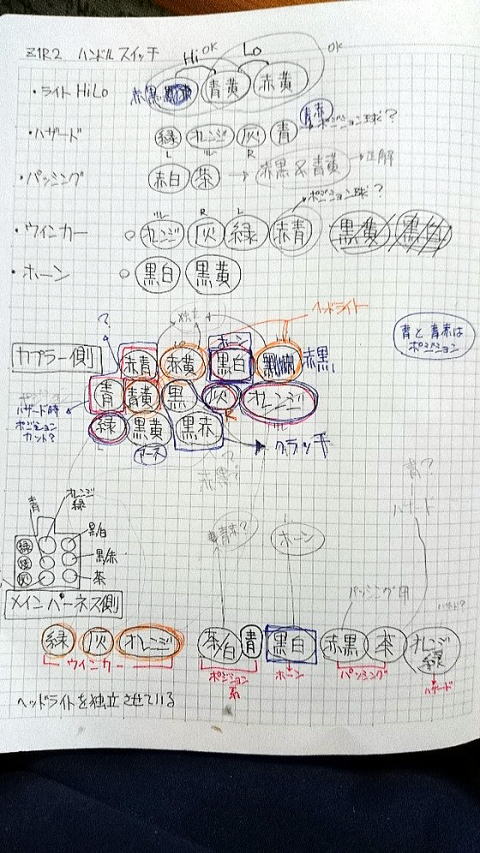 Z1R2 ハンドルスイッチ
Hi OK Lo OK
・ライト HiLo 赤黒 青黄 赤黄
青赤
・ハザード 緑 オレンジ 灰 青 → ポジション球?
L R
・パッシング 赤白 茶 → 赤黒 & 青黄 → 正解
ポジション球?
R L
・ウィンカー オレンジ 灰 緑 赤青 黒黄
・ホーン 黒白 黒黄
ヘッドライト
? ホーン
カプラー側 赤青 赤黄 黒白 赤黒
青と青赤は
ポジション
青 青黄 黒 灰 オレンジ
R
ハザード時
ポジション
カット?
緑 黒黄 黒赤 → クラッチ
アース
青?
青 オレンジ
緑
ハザード
黒/白
黒/赤
茶
緑
灰
青赤?
ホーン
メインハーネス側
パッシング用
緑 灰 オレンジ 茶/白 青 黒白 赤黒 茶 オレンジ
緑
ウィンカー ポジション
系 ホーン パッシング ハザード
ヘッドライトを独立させている